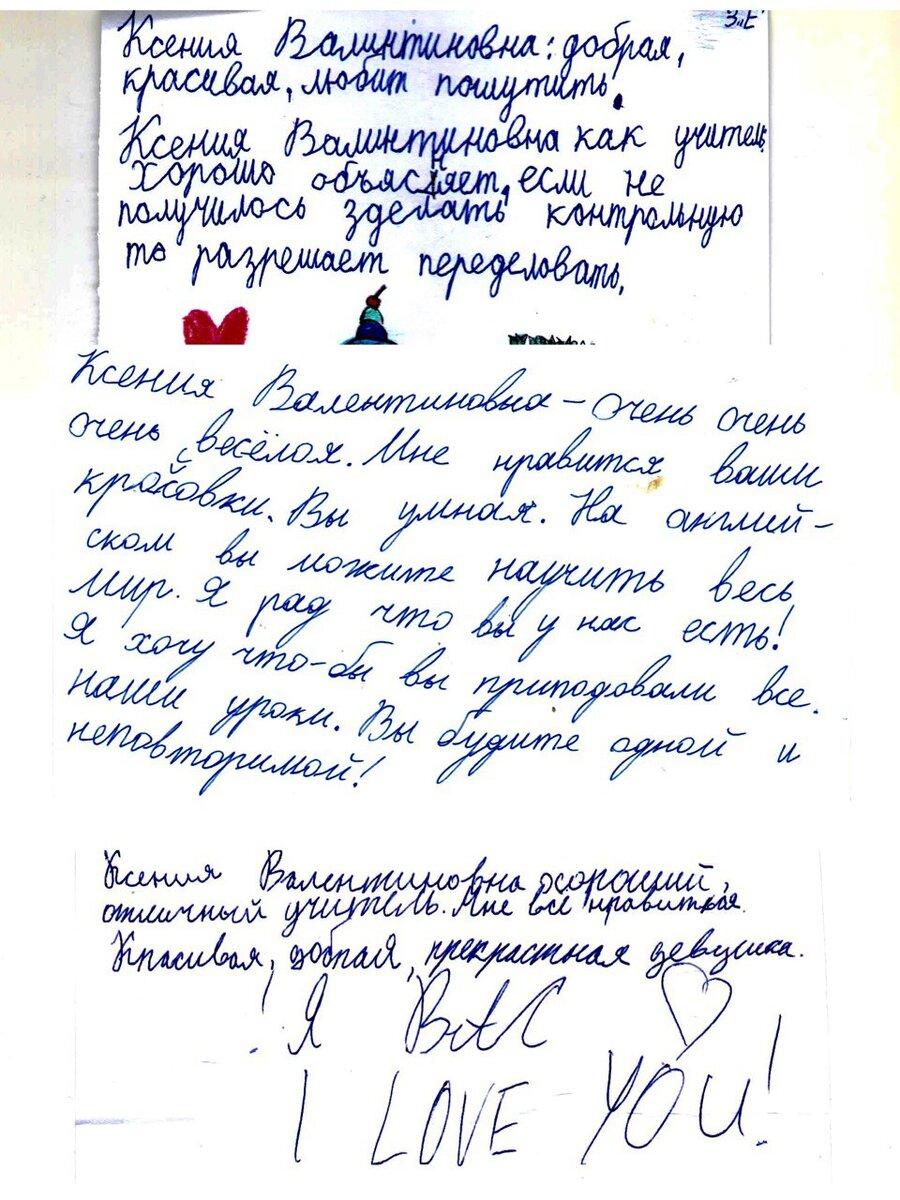 3 "Е"
Ксения Валинтиновна: добрая,
красивая, любит пошутить.
Ксения Валинтиновна как учитель
хорошо объясняет, если не
получилось зделать контрольную
то разрешает переделовать.
Ксения Валентиновна - очень очень
очень весёлая. Мне нравится ваши
кросовки. Вы умная. На англий-
ском вы можите научить весь
мир. Я рад что вы у нас есть!
Я хочу что-бы вы приподовали все
наши уроки. Вы будите одной и
неповторимой!
Ксения Валентиновна хороший,
отличный учитель. Мне всё нравиться.
Красивая, добрая, прекрастная девушка.
Я ВАС ♡
I LOVE YOU!